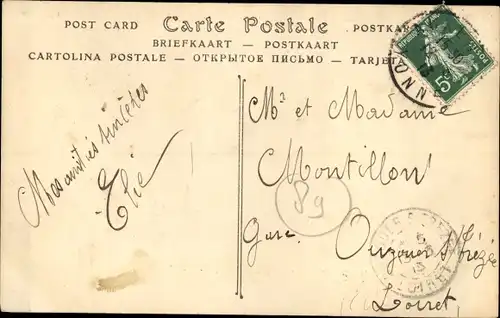 POST CARD Carte Postale POSTKA
BRIEFKAART - POSTKAART
CARTOLINA POSTALE - ОТКРЫТОЕ ПИСЬМО - TARJETA
5c
POSTES
Mes amitiés sincères
Elie
Mr et Madame
Montillon
89
Gare
Ouzouer s/ Trézée
Loiret
LOIRET